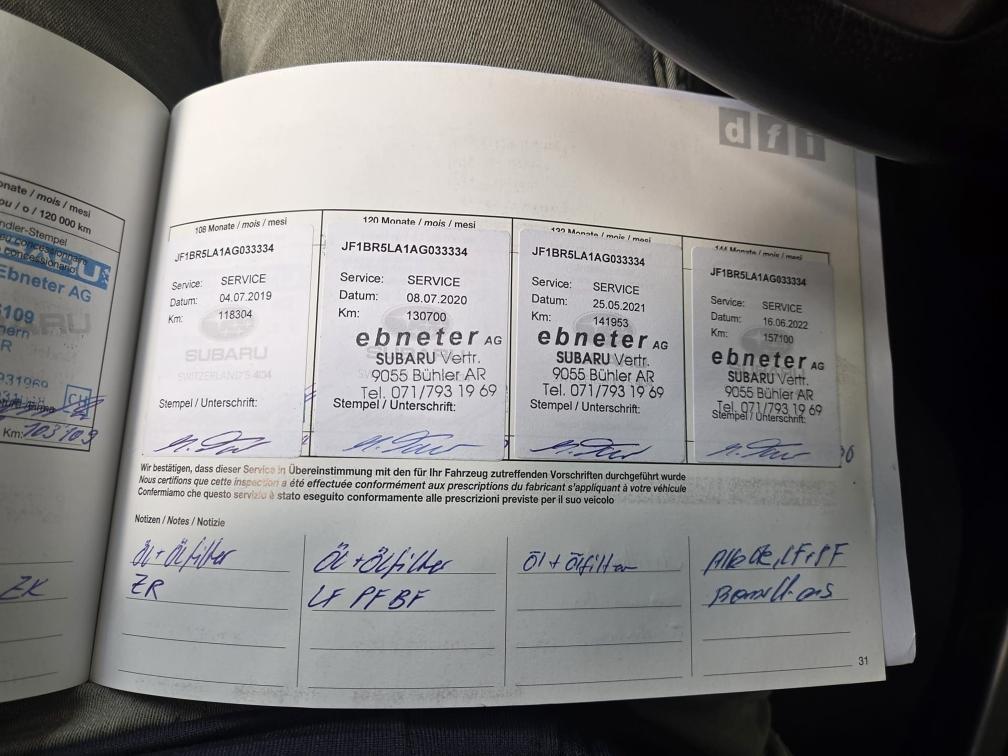 dfi
onate / mois / mesi
ou / o / 120 000 km
ndler-Stempel
concessionnaire
concessionario
Ebneter AG
5109
R
931969
CH
Km: 103109
ZK
108 Monate / mois / mesi
JF1BR5LA1AG033334
Service: SERVICE
Datum: 04.07.2019
Km: 118304
SUBARU
SWITZERLAND'S 4x4
Stempel / Unterschrift:
120 Monate / mois / mesi
JF1BR5LA1AG033334
Service: SERVICE
Datum: 08.07.2020
Km: 130700
ebneter AG
SUBARU Vertr.
9055 Bühler AR
Tel. 071/793 19 69
Stempel / Unterschrift:
132 Monate / mois / mesi
JF1BR5LA1AG033334
Service: SERVICE
Datum: 25.05.2021
Km: 141953
ebneter AG
SUBARU Vertr.
9055 Bühler AR
Tel. 071/793 19 69
Stempel / Unterschrift:
144 Monate / mois / mesi
JF1BR5LA1AG033334
Service: SERVICE
Datum: 16.06.2022
Km: 157100
ebneter AG
SUBARU Vertr.
9055 Bühler AR
Tel. 071/793 19 69
Stempel / Unterschrift:
Wir bestätigen, dass dieser Service in Übereinstimmung mit den für Ihr Fahrzeug zutreffenden Vorschriften durchgeführt wurde
Nous certifions que cette inspection a été effectuée conformément aux prescriptions du fabricant s'appliquant à votre véhicule
Confermiamo che questo servizio è stato eseguito conformemente alle prescrizioni previste per il suo veicolo
Notizen / Notes / Notizie
Öl + Ölfilter
ZR
Öl + Ölfilter
LF PF BF
Öl + Ölfilter
Alle Öle, LF + PF
31